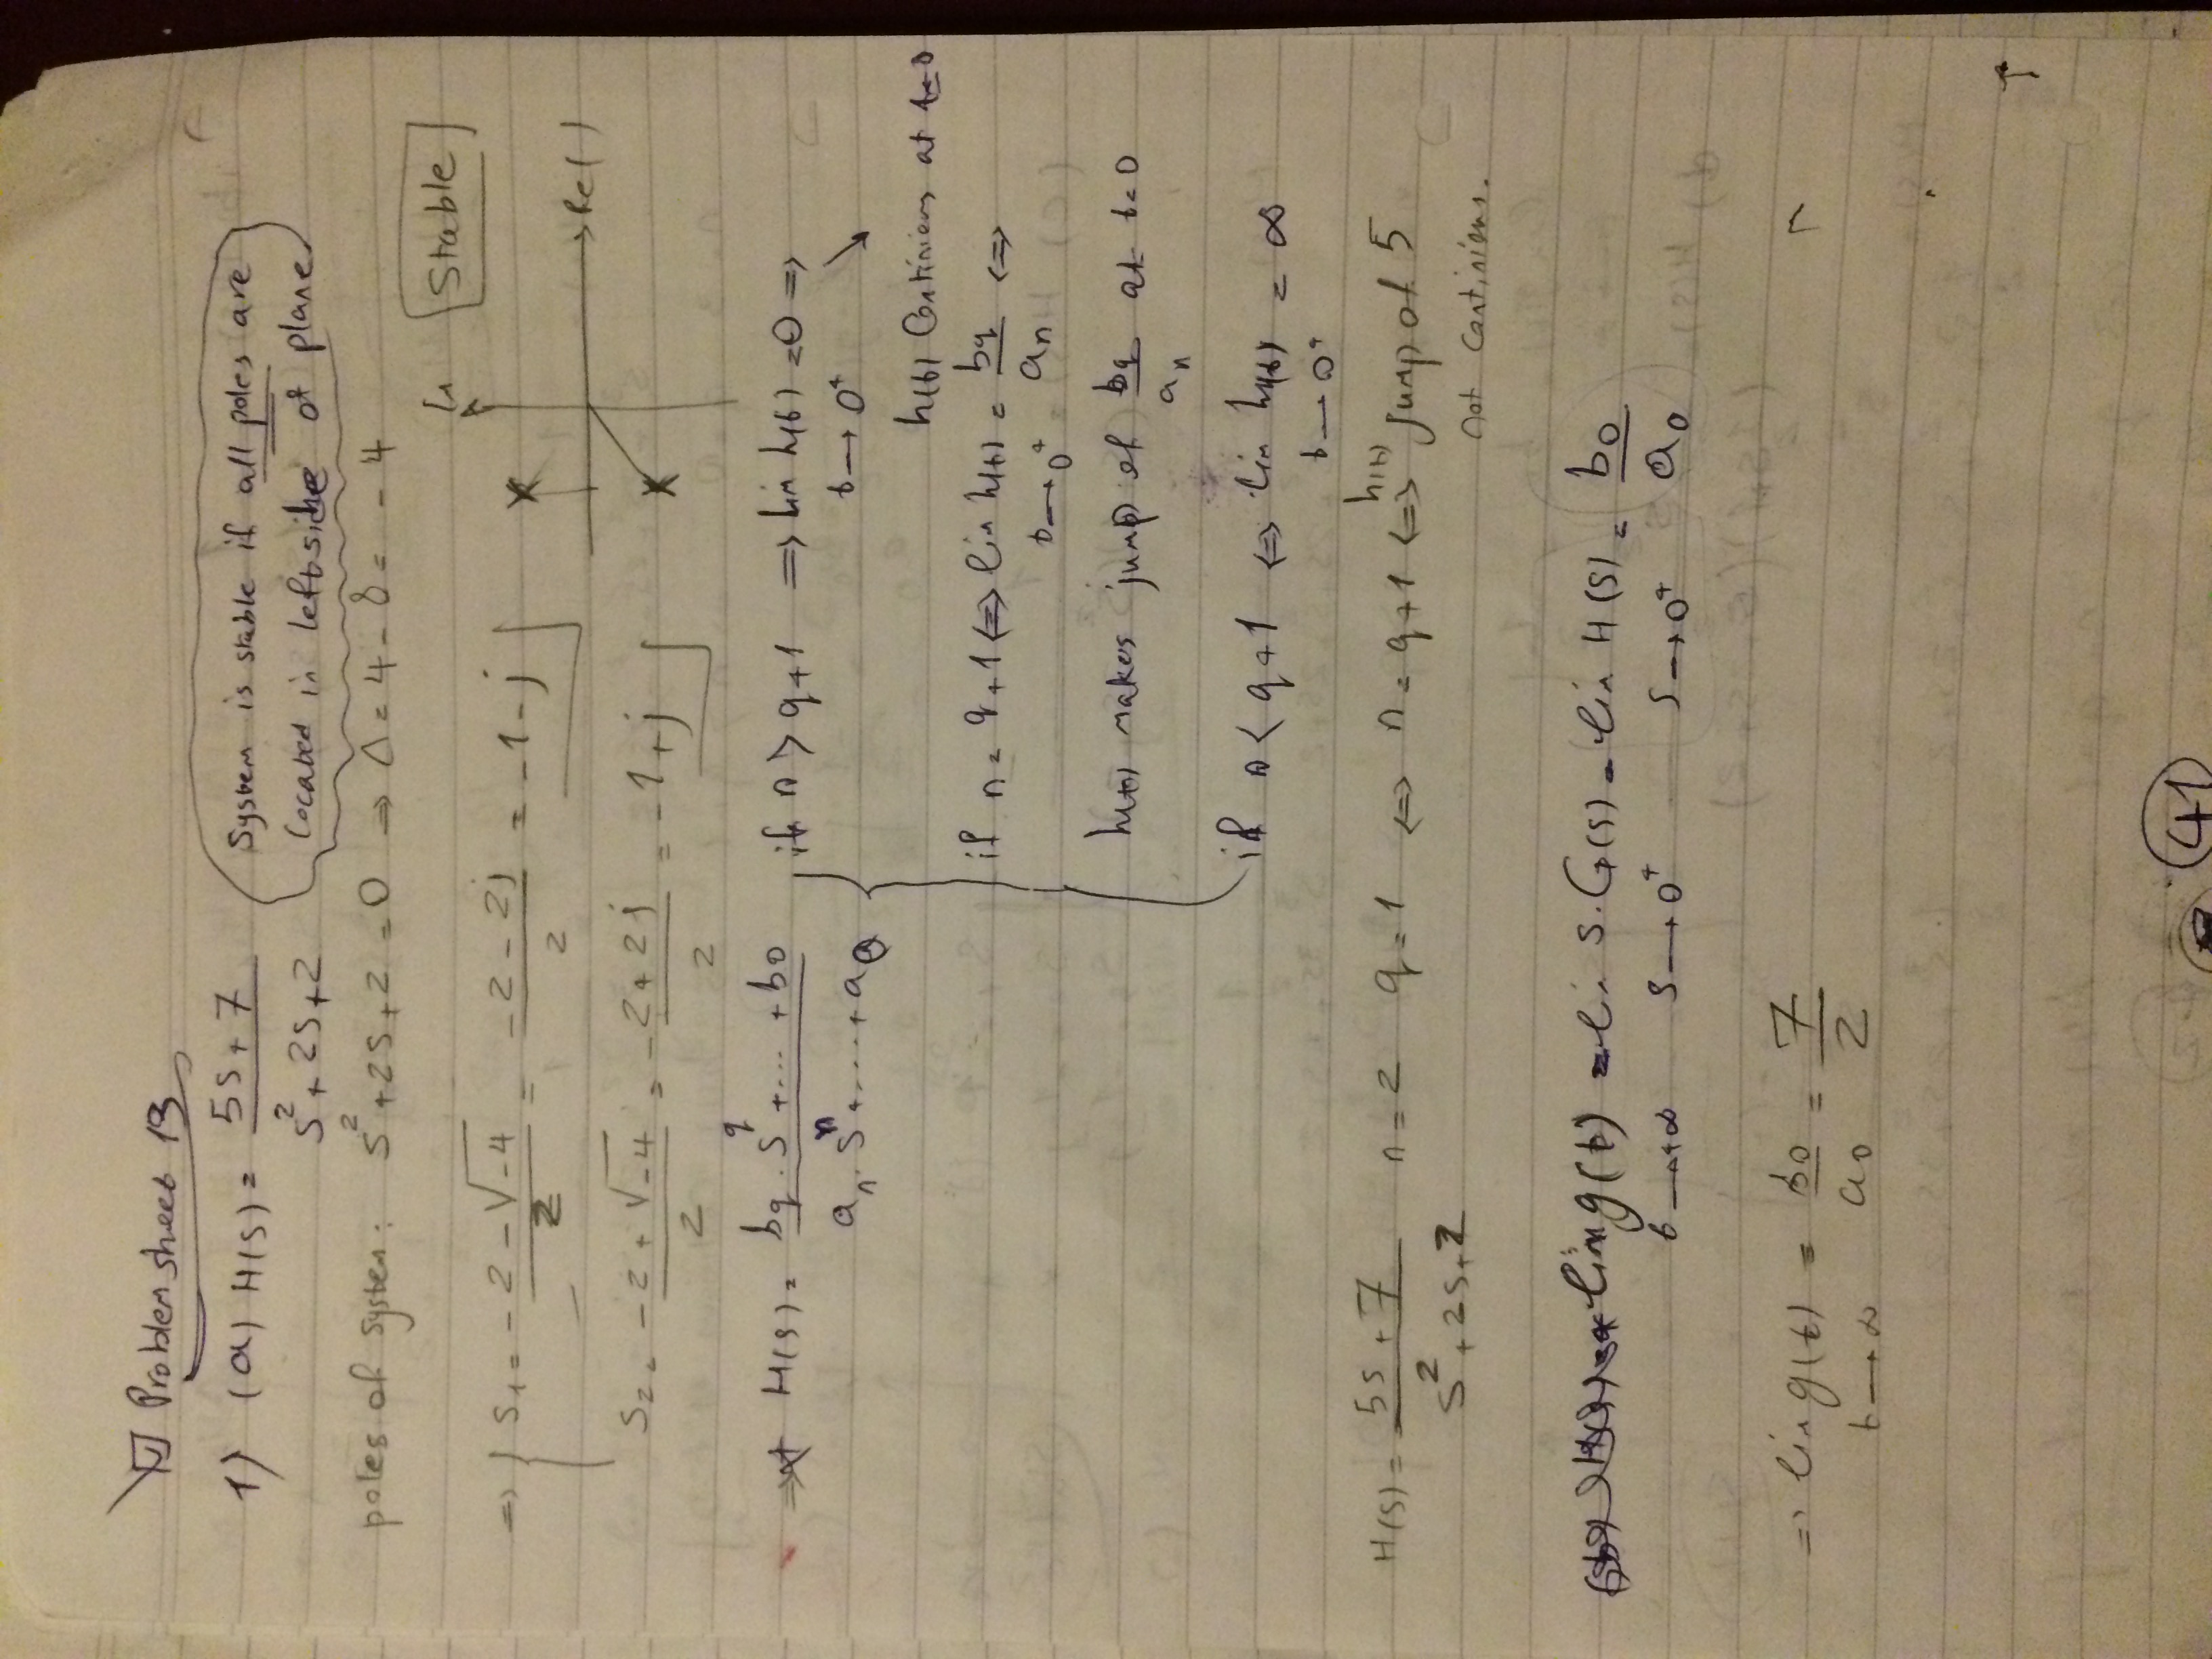 Problem sheet 13
1) (a) H(s) = 5s + 7 / s² + 2s + 2
System is stable if all poles are
located in leftside of plane
poles of system: s² + 2s + 2 = 0 ⇒ Δ = 4 - 8 = - 4
Stable
⇒ { S₁ = - 2 - √-4 / 2 = - 2 - 2j / 2 = -1 - j
Re( )
S₂ = - 2 + √-4 / 2 = - 2 + 2j / 2 = -1 + j
H(s) = bq . s^q + ... + b0 / an . s^n + .... + a0
if n > q+1 ⇒ lim h(t) = 0 ⇒
t → 0⁺
h(t) Continiens at t=0
if n = q+1 ⇔ lim h(t) = bq / an ⇔
t → 0⁺
h(t) makes jump of bq / an at t = 0
if n < q+1 ⇔ lim h(t) = ∞
t → 0⁺
H(s) = 5s + 7 / s² + 2s + 2 n = 2 q = 1 ⇔ n = q+1 ⇔ h(t) jump of 5
not continiens.
lim g(t) = li s.G(s) = lim H(s) = b0 / a0
t → +∞ s → 0⁺ s → 0⁺
⇒ lim g(t) = b0 / a0 = 7 / 2
t → ∞
41